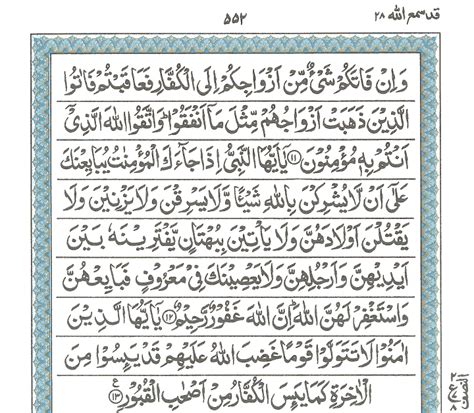 قد سمع الله ۲۸
۵۵۲
وَاِنْ فَاتَكُمْ شَیْءٌ مِّنْ اَزْوَاجِكُمْ اِلَی الْكُفَّارِ فَعَاقَبْتُمْ فَاٰتُوا
الَّذِیْنَ ذَهَبَتْ اَزْوَاجُهُمْ مِّثْلَ مَاۤ اَنْفَقُوْا ؕ وَاتَّقُوا اللّٰهَ الَّذِیْۤ
اَنْتُمْ بِهٖ مُؤْمِنُوْنَ ﴿۱۱﴾ یٰۤاَیُّهَا النَّبِیُّ اِذَا جَآءَكَ الْمُؤْمِنٰتُ یُبَایِعْنَكَ
عَلٰۤی اَنْ لَّا یُشْرِكْنَ بِاللّٰهِ شَیْـًٔا وَّلَا یَسْرِقْنَ وَلَا یَزْنِیْنَ وَلَا
یَقْتُلْنَ اَوْلَادَهُنَّ وَلَا یَاْتِیْنَ بِبُهْتَانٍ یَّفْتَرِیْنَهٗ بَیْنَ
اَیْدِیْهِنَّ وَاَرْجُلِهِنَّ وَلَا یَعْصِیْنَكَ فِیْ مَعْرُوْفٍ فَبَایِعْهُنَّ
وَاسْتَغْفِرْ لَهُنَّ اللّٰهَ ؕ اِنَّ اللّٰهَ غَفُوْرٌ رَّحِیْمٌ ﴿۱۲﴾ یٰۤاَیُّهَا الَّذِیْنَ
اٰمَنُوْا لَا تَتَوَلَّوْا قَوْمًا غَضِبَ اللّٰهُ عَلَیْهِمْ قَدْ یَىِٕسُوْا مِنَ
الْاٰخِرَةِ كَمَا یَىِٕسَ الْكُفَّارُ مِنْ اَصْحٰبِ الْقُبُوْرِ ﴿۱۳﴾ ع